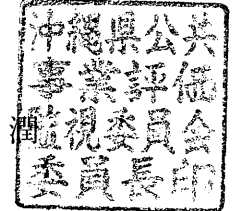 沖縄県公共
事業評価
監視委員会
委員長印
潤